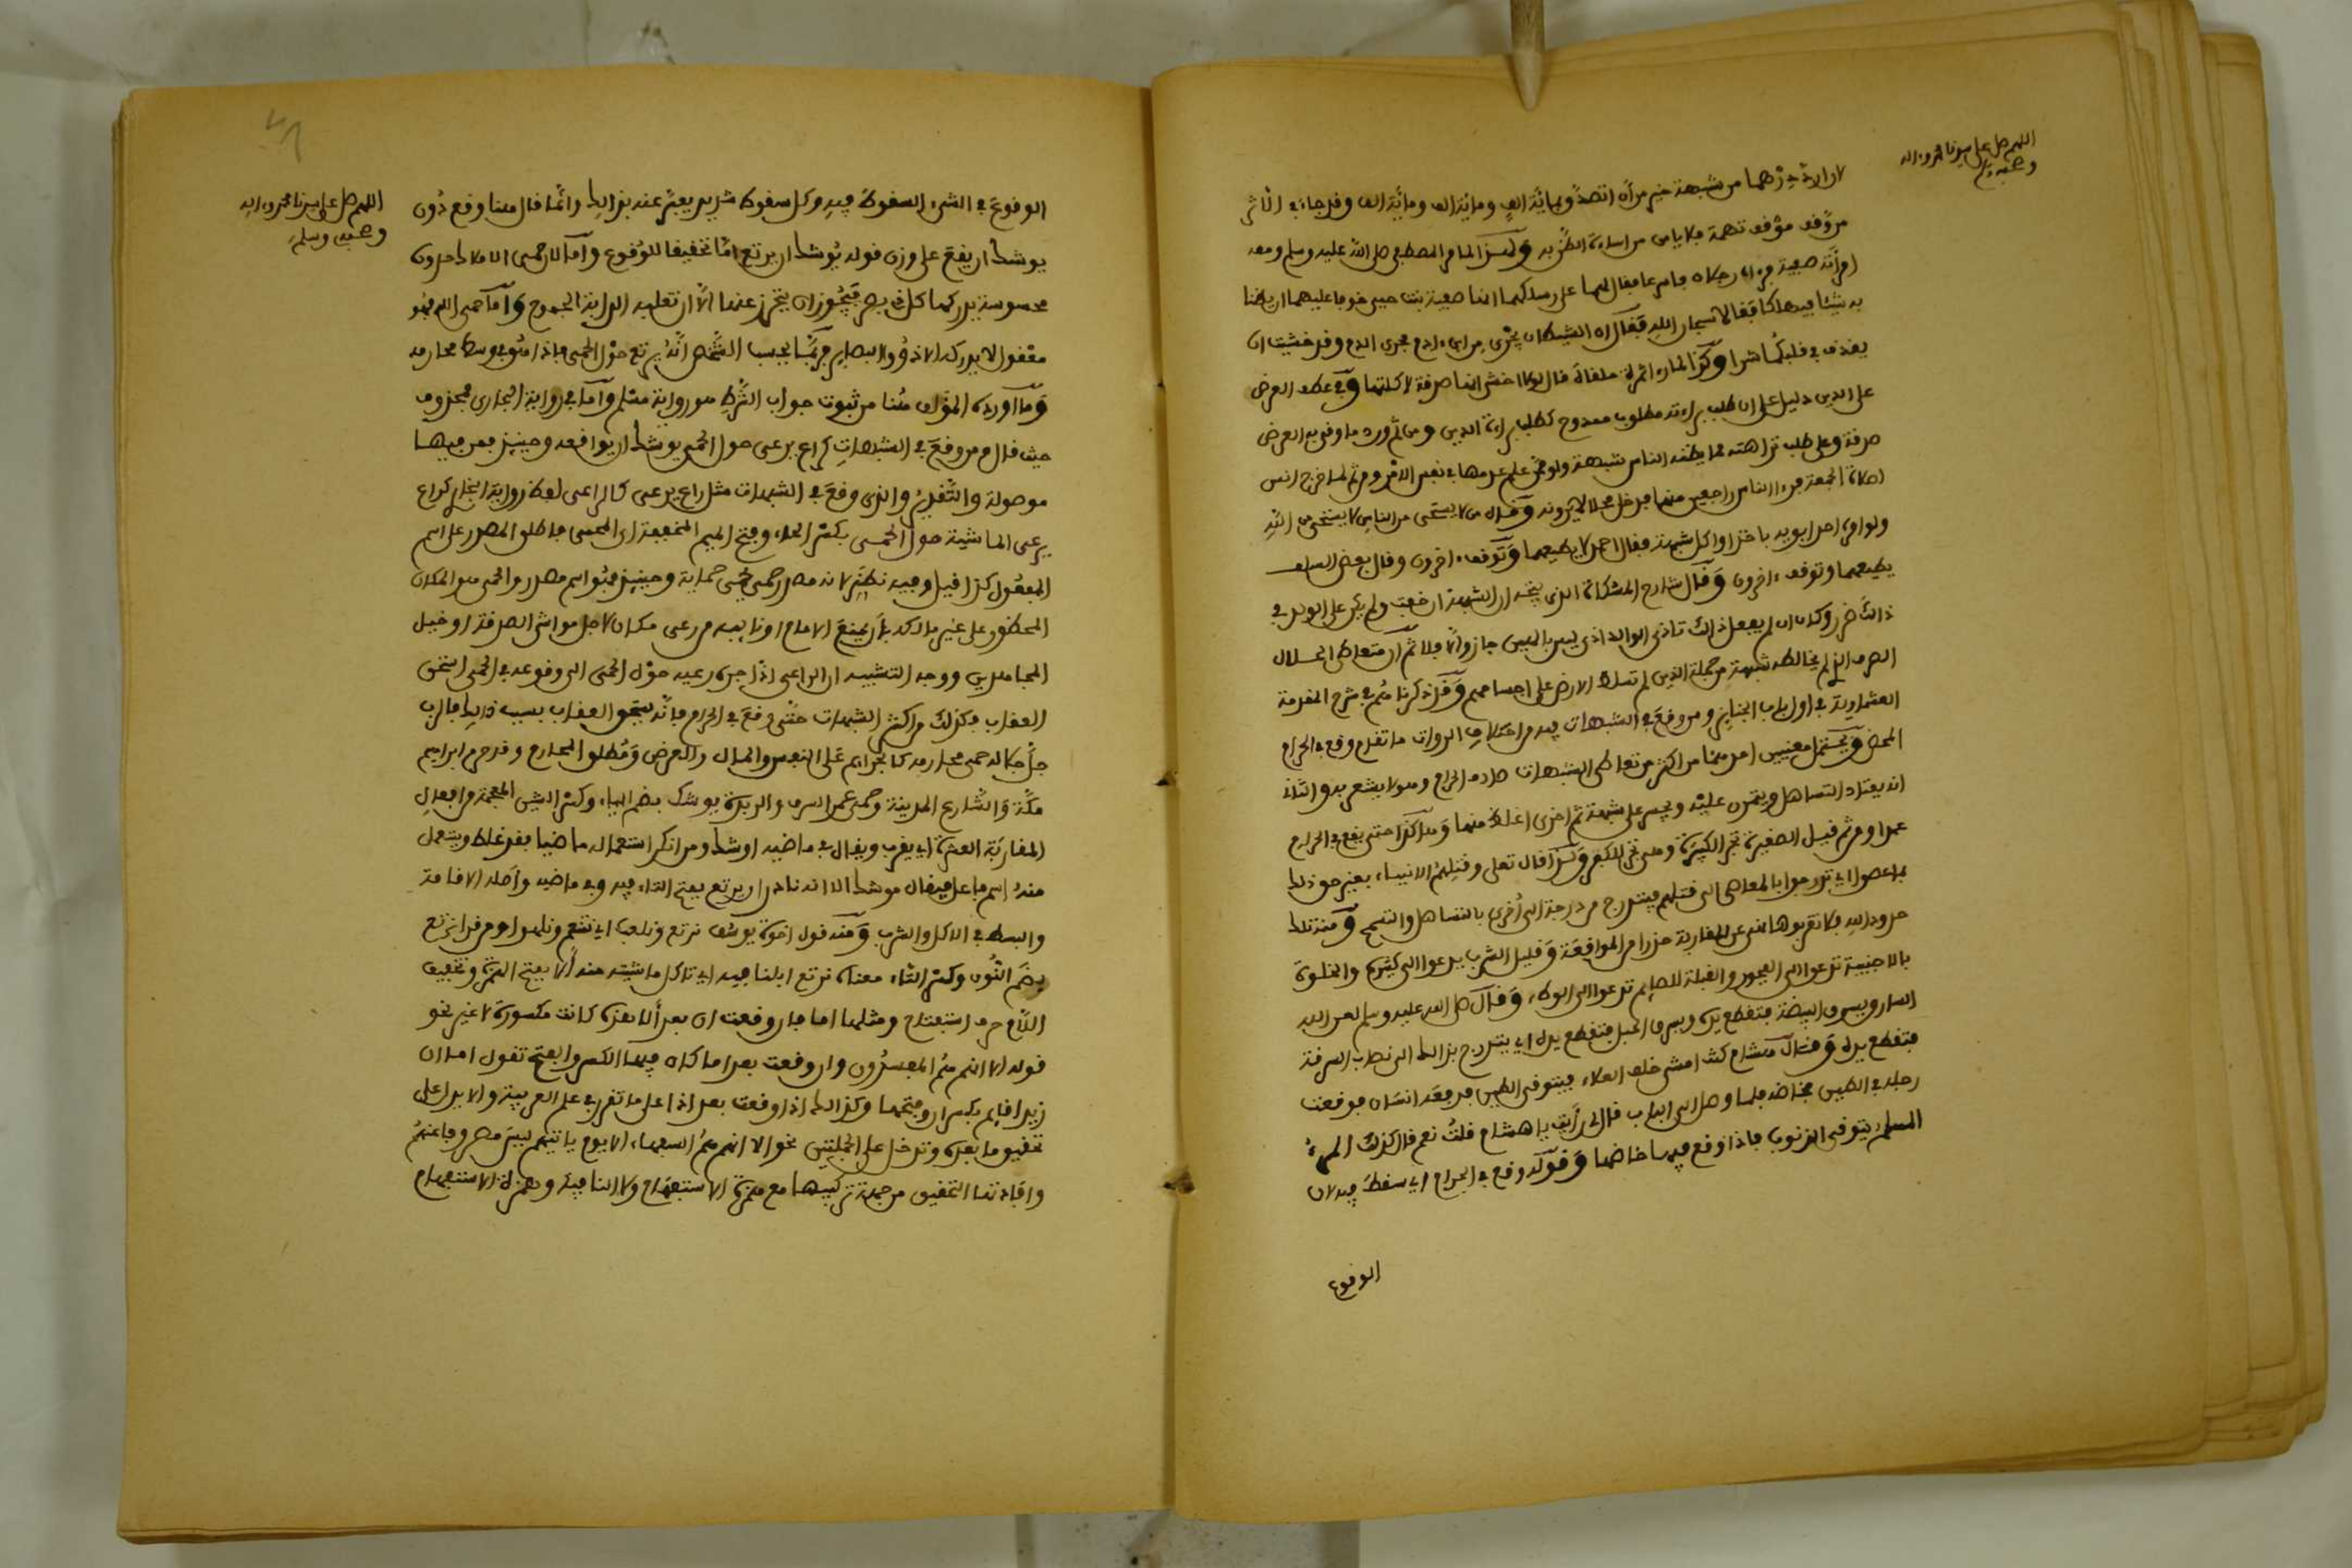 اللهم صل على سيدنا محمد وءاله
وصحبه وسلم
لان ارد درهما من شبهة خير من أن اتصدق بمائة الف ومائة الف ومائة الف وقد جاء في الاثر
من وقف موقف تهمة فلا يامن من اساءة الظن به ولهذا لما مر المصطفى صلى الله عليه وسلم ومعه
امرأته صفية فرءاه رجلان فاسرعا فقال لهما على رسلكما انها صفية بنت حيي خوفا عليهما ان يظنا
به شيئا فيهلكا فقالا سبحان الله فقال ان الشيطان يجري من ابن ءادم مجرى الدم وقد خشيت ان
يقذف في قلبكما شرا وكذا لما رءا تمرة ملقاة قال لولا اخشى انها صدقة لاكلتها وفي عطف العرض
على الدين دليل على ان طلب براءته مطلوب ممدوح كطلب براءة الدين ومن ثم ورد ما وقي به العرض
صدقة وعلى طلب نزاهته مما يظنه الناس شبهة ولو ممن علم عدمها في نفس الامر ومن ثم لما خرج انس
لصلاة الجمعة فرءا الناس راجعين منها فدخل محلا لا يرونه وقال من لا يستحي من الناس لا يستحي من الله
ولو امره احد ابويه باخذ او اكل شبهة فقال احمد لا يطيعهما وتوقف ءاخرون وقال بعض السلف
يطيعهما وتوقف ءاخرون وقال شارح المشكاة الذي يتجه ان الشبهة ان خفت ولم يكن على الولد في
ذالك ضرر وكان ان لم يفعل ذالك تاذى الوالد اذى ليس بالهين جاز والا فلا ثم ان متعاطي الحلال
الصرف الذي لم يخالطه شبهة من جملة الذين لم تسلط الارض على اجسامهم وقد ذكرنا هم في شرح المقدمة
العشماوية في اول باب الجنايز ومن وقع في الشبهات فيه من اختلاف الروات ما تقدم وقع في الحرام
المحض ويحتمل معنيين احدهما من اكثر من تعاطي الشبهات صادف الحرام وهو لا يشعر به والثاني
انه يعتاد التساهل ويتمرن عليه ويجسر على شبهة ثم اخرى اغلظ منها وهكذا حتى يقع في الحرام
عمدا ومن ثم قيل الصغيرة تجر الكبيرة وهي تجر للكفر وكذا قال تعلى وقتلهم الانبياء بغير حق ذلك
بما عصوا اي تدرجوا بالمعاصي الى قتلهم فيتدرج من درجة الى أخرى بالتساهل والتسمح ومنه تلك
حدود الله فلا تقربوها نهى عن المقاربة حذرا من المواقعة وقليل الشرب يدعوا الى كثيره والخلوة
بالاجنبية تدعوا الى الفجور والقبلة للصايم تدعوا الى الوطء وقال صلى الله عليه وسلم لعن الله
السارق يسرق البيضة فتقطع يده ويسرق الحبل فتقطع يده اي يتدرج بذالك الى نصاب السرقة
فتقطع يده وقال هشام كنت امشي خلف العلاء فيتوقى الطين فدفعه انسان فوقعت
رجله في الطين فخاضه فلما وصل الى الباب قال لي رأيت يا هشام قلت نعم قال كذلك المرء
المسلم يتوقى الذنوب فاذا وقع فيها خاضها وقوله وقع في الحرام اي سقط فيه لان
الوقوع
اللهم صل على سيدنا محمد وءاله
وصحبه وسلم
الوقوع في الشيء السقوط فيه وكل سقوط شديد يعبر عنه بذالك وانما قال هنا وقع دون
يوشك ان يقع على وزن قوله يوشك ان يرتع اما تحقيقا للوقوع واما لان حمى الاملاك حدوده
محسوسة يدركها كل ذي بصر فيجوز ان يتحرز عنها الا ان تغلبه الدابة الجموح واما حمى الله فهو
معقول لا يدركه الا ذوو البصاير فربما يحسب الشخص انه يرتع حول الحمى فاذا هو في وسط محارمه
وما اورده المؤلف هنا من ثبوت جواب الشرط هو رواية مسلم واما في رواية البخاري فمحذوف
حيث قال ومن وقع في الشبهات كراع يرعى حول الحمى يوشك ان يواقعه وحينئذ فمن فيها
موصولة والتقدير والذي وقع في الشبهات مثل راع يرعى كالراعي لفظ رواية البخاري كراع
يرعى الماشية حول الحمى بكسر الحاء وفتح الميم المخففة اي المحمى فاطلق المصدر على اسم
المفعول كذا قيل وفيه نظر لانه مصدر حمى يحمي حماية وحينئذ فهو اسم مصدر والحمى هو المكان
المحظور على غير مالكه بأن يمنع الامام او نايبه من رعي مكان لاجل مواشي الصدقة او خيل
المجاهدين ووجه التشبيه ان الراعي اذا جره رعيه حول الحمى الى وقوعه في الحمى استحق
العقاب فكذلك من اكثر الشبهات حتى وقع في الحرام فانه يستحق العقاب بسبب ذالك فالرب
جل جلاله حمى محارمه كالجرايم على النفس والمال والعرض ومطلق المحارم وقد حرم ابراهيم
مكة والشارع المدينة وحمى عمر السرف والربذة يوشك بضم الياء وكسر الشين المعجمة من افعال
المقاربة العشرة اي يقرب ويقال في ماضيه اوشك ومن انكر استعماله ماضيا فقد غلط ويستعمل
منه اسم فاعل فيقال موشك الا انه نادر ان يرتع بفتح التاء فيه وفي ماضيه واصله الاقامة
والبسط في الاكل والشرب ومنه قول اخوة يوسف نرتع ونلعب اي نتنعم ونلهوا ومن قرا نرتع
بضم النون وكسر التاء معناه نرتع ابلنا فيه اي تاكل ماشيته منه ألا بفتح الهمزة وتخفيف
اللام حرف استفتاح ومثلها اما فان وقعت ان بعد ألا هذه كانت مكسورة لا غير نحو
قوله الا انهم هم المفسدون وان وقعت بعد اما كان فيها الكسر والفتح تقول اما ان
زيدا قايم بكسر ان وفتحها وكذالك اذا وقعت بعد اذا على ما تقرر في علم العربية والا يدل على
تحقيق ما بعده وتدخل على الجملتين نحو الا انهم هم السفهاء الا يوم ياتيهم ليس مصروفا عنهم
وافادتها التحقيق من جهة تركيبها مع همزة الاستفهام ولا النافية وهمزة الاستفهام